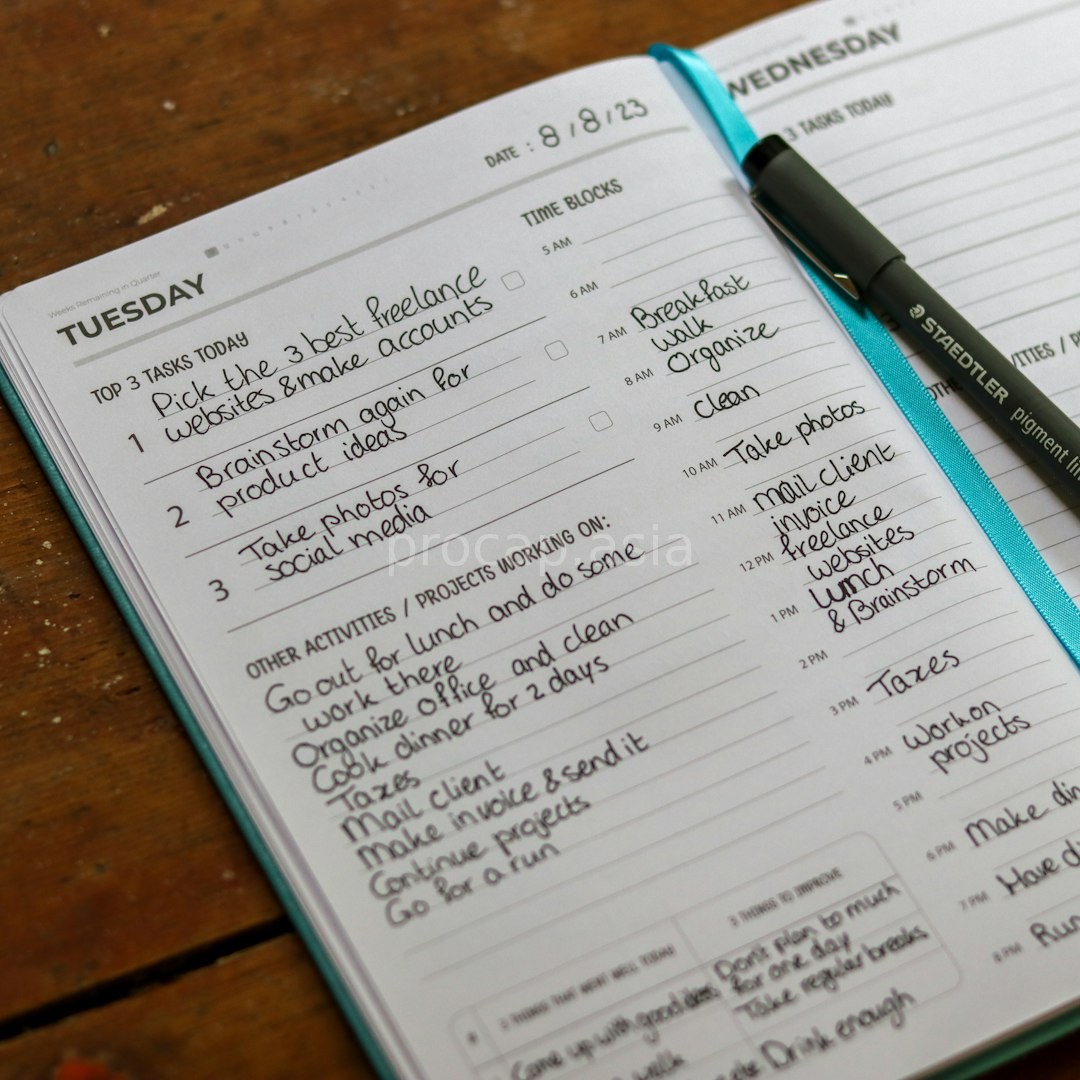 Weeks Remaining in Quarter
TUESDAY
DATE : 8 / 8 / 23
TOP 3 TASKS TODAY
1 Pick the 3 best freelance
websites & make accounts
2 Brainstorm again for
product ideas
3 Take photos for
social media
OTHER ACTIVITIES / PROJECTS WORKING ON:
Go out for lunch and do some
work there
Organize office and clean
Cook dinner for 2 days
Taxes
Mail client
Make invoice & send it
Continue projects
Go for a run
TIME BLOCKS
5 AM
6 AM
7 AM Breakfast
walk
8 AM Organize
9 AM Clean
10 AM Take photos
11 AM mail client
invoice
12 PM freelance
websites
1 PM lunch
& Brainstorm
2 PM
3 PM Taxes
4 PM Work on
projects
5 PM
6 PM Make din
7 PM Have d
8 PM Run
3 THINGS THAT WENT WELL TODAY
Came up with good
walk
3 THINGS TO IMPROVE
Don't plan to much
for one day
Take regular breaks
Drink enough
WEDNESDAY
3 TASKS TODAY
OTHE
VITIES / P
STAEDTLER pigment lin
procap.asia